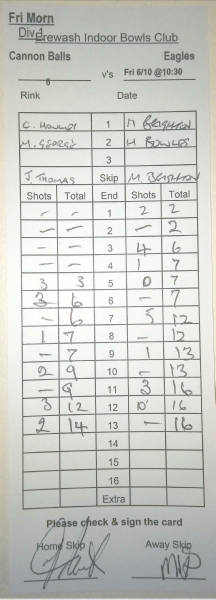 Fri Morn
Div 1
Erewash Indoor Bowls Club
Cannon Balls Eagles
6 v's Fri 6/10 @10:30
Rink Date
1 M BEIGHTON
M. GEORGE 2 H BOWLES
3
J. THOMAS Skip M BEIGHTON
Shots Total End Shots Total
- - 1 2 2
- - 2 - 2
- - 3 4 6
- - 4 1 7
3 3 5 0 7
3 6 6 - 7
- 6 7 5 12
1 7 8 - 12
- 7 9 1 13
2 9 10 - 13
- 9 11 3 16
3 12 12 0 16
2 14 13 - 16
14
15
16
Extra
Please check & sign the card
Home Skip Away Skip